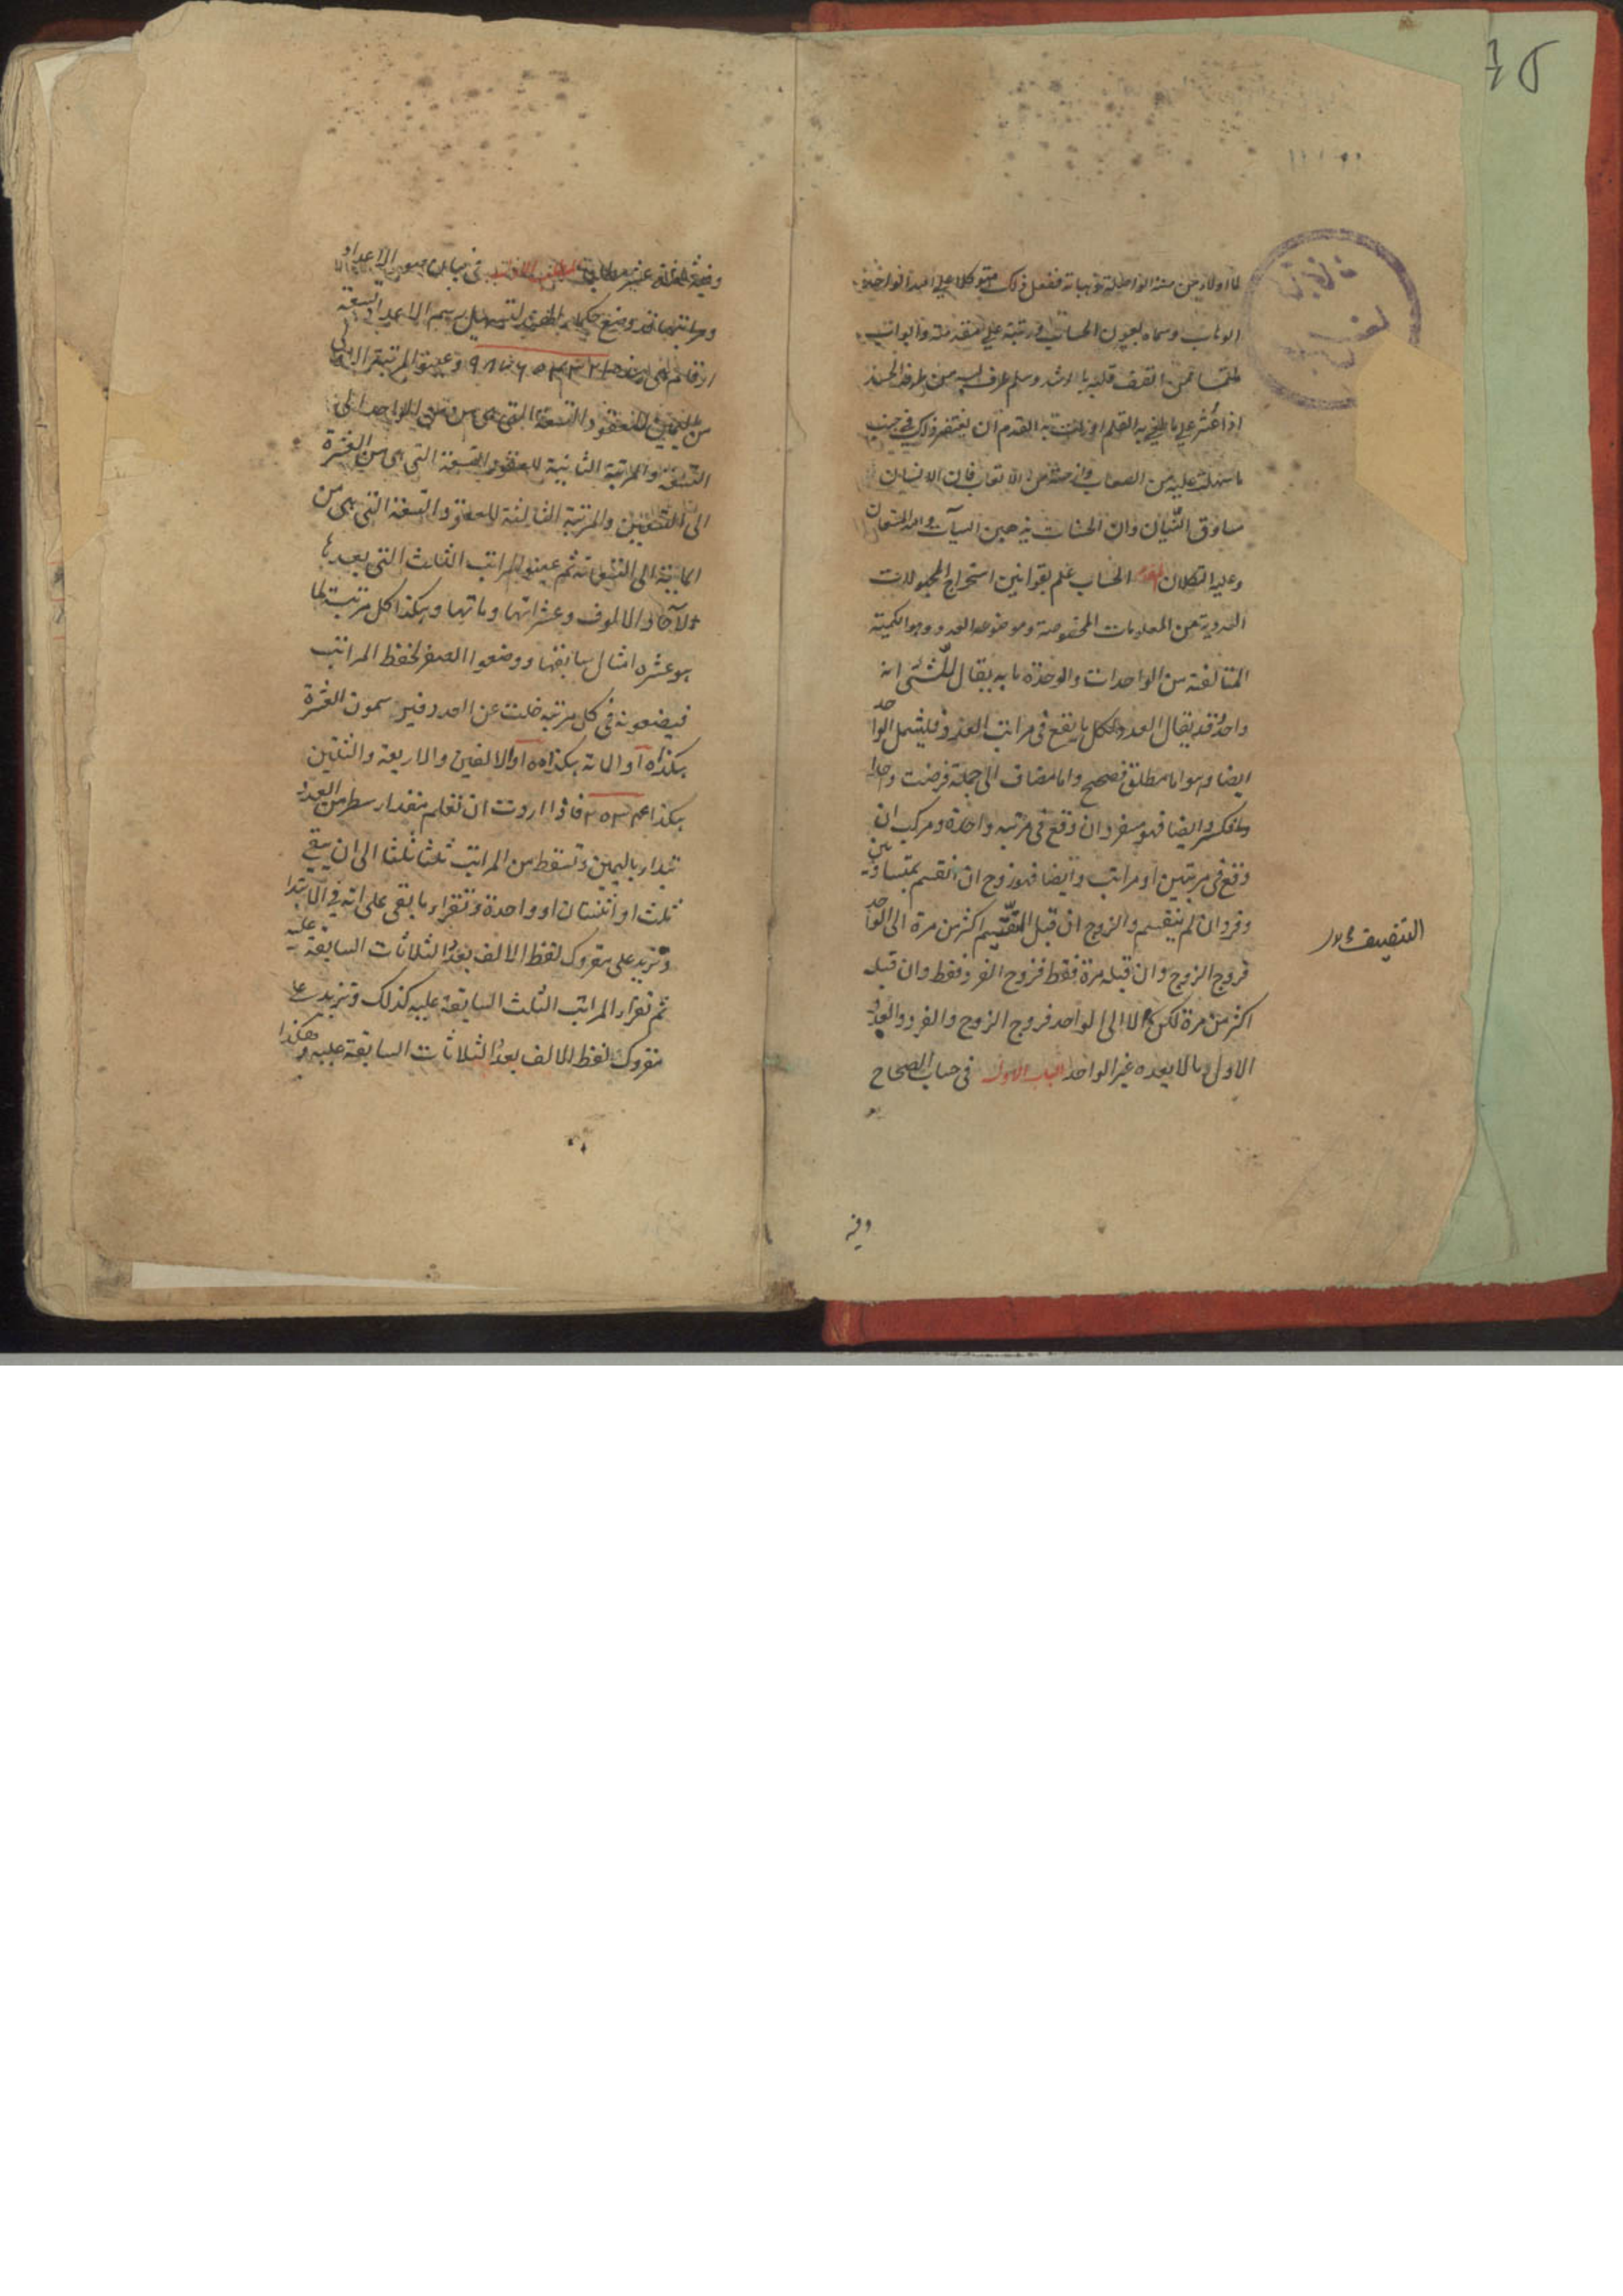 الوهاب وسماه بعيون الحساب ورتبته على مقدمة وابواب
ملتمسا ممن اتصف قلبه بالرشد وسلم
اذا عثر على ما طغى به القلم او زلت به القدم ان يغتفر ذلك في جنب
ما سهلت عليه من الصعاب فان الانسان
مساوق النسيان وان الحسنات يذهبن السيئات والله المستعان
وعليه التكلان المقدمة الحساب علم بقوانين استخراج المجهولات
العددية من المعلومات المخصوصة وموضوعه العدد وهو الكمية
المتألفة من الواحدات والوحدة ما به يقال للشئ انه
واحد وقد يقال العدد لكل ما يقع في مراتب العد فيشمل الواحد
ايضا وهو اما مطلق فصحيح واما مضاف الى جملة فرضت واحدا
فكسر وايضا فهو مفرد ان وقع في مرتبة واحدة ومركب ان
وقع في مرتبتين او مراتب وايضا فهو زوج ان انقسم بمتساويين
وفرد ان لم ينقسم والزوج ان قبل التنصيف اكثر من مرة الى الواحد
فزوج الزوج وان قبله مرة فقط فزوج الفرد فقط وان قبله
اكثر من مرة لكن لا الى الواحد فزوج الزوج والفرد والعدد
الاول ما لا يعده غير الواحد الباب الاول في حساب الصحاح
التنصيف
وفيه
وفيه في بيان صور الاعداد
ومراتبها قد وضع حكماء الهند لتسهيل رسم الاعداد تسعة
ارقام هى هذه ١ ٢ ٣ ٤ ٥ ٦ ٧ ٨ ٩ وعينوا المرتبة الاولى
من اليمين للعقود التسعة التى هى من الواحد الى
التسعة والمرتبة الثانية للعقود التسعة التى هى من العشرة
الى التسعين والمرتبة الثالثة للعقود التسعة التى هى من
المائة الى التسعمائة ثم عينوا المراتب الثلث التى بعدها
لآحاد الالوف وعشراتها ومآتها وهكذا كل مرتبة لها
هو عشرة امثال سابقتها ووضعوا الصفر لحفظ المراتب
فيضعونه فى كل مرتبة خلت عن العدد فيرسمون العشرة
هكذا ١٥ والمائة هكذا ١٥٥ والالفين والاربعة والثلثين
هكذا ٢٥٣٤ فاذا اردت ان تعلم مقدار سطر من العدد
تبدأ باليمين وتسقط من المراتب ثلثا ثلثا الى ان يبقى
ثلث او اثنتان او واحدة وتقرأ ما بقى على انه فى الابتداء
وتزيد على مقروك لفظ الالف بعدد الثلاثات السابقة عليه
ثم تقرأ المراتب الثلث السابقة عليه كذلك وتزيد على
مقروك لفظ الالف بعدد الثلاثات السابقة عليه وهكذا